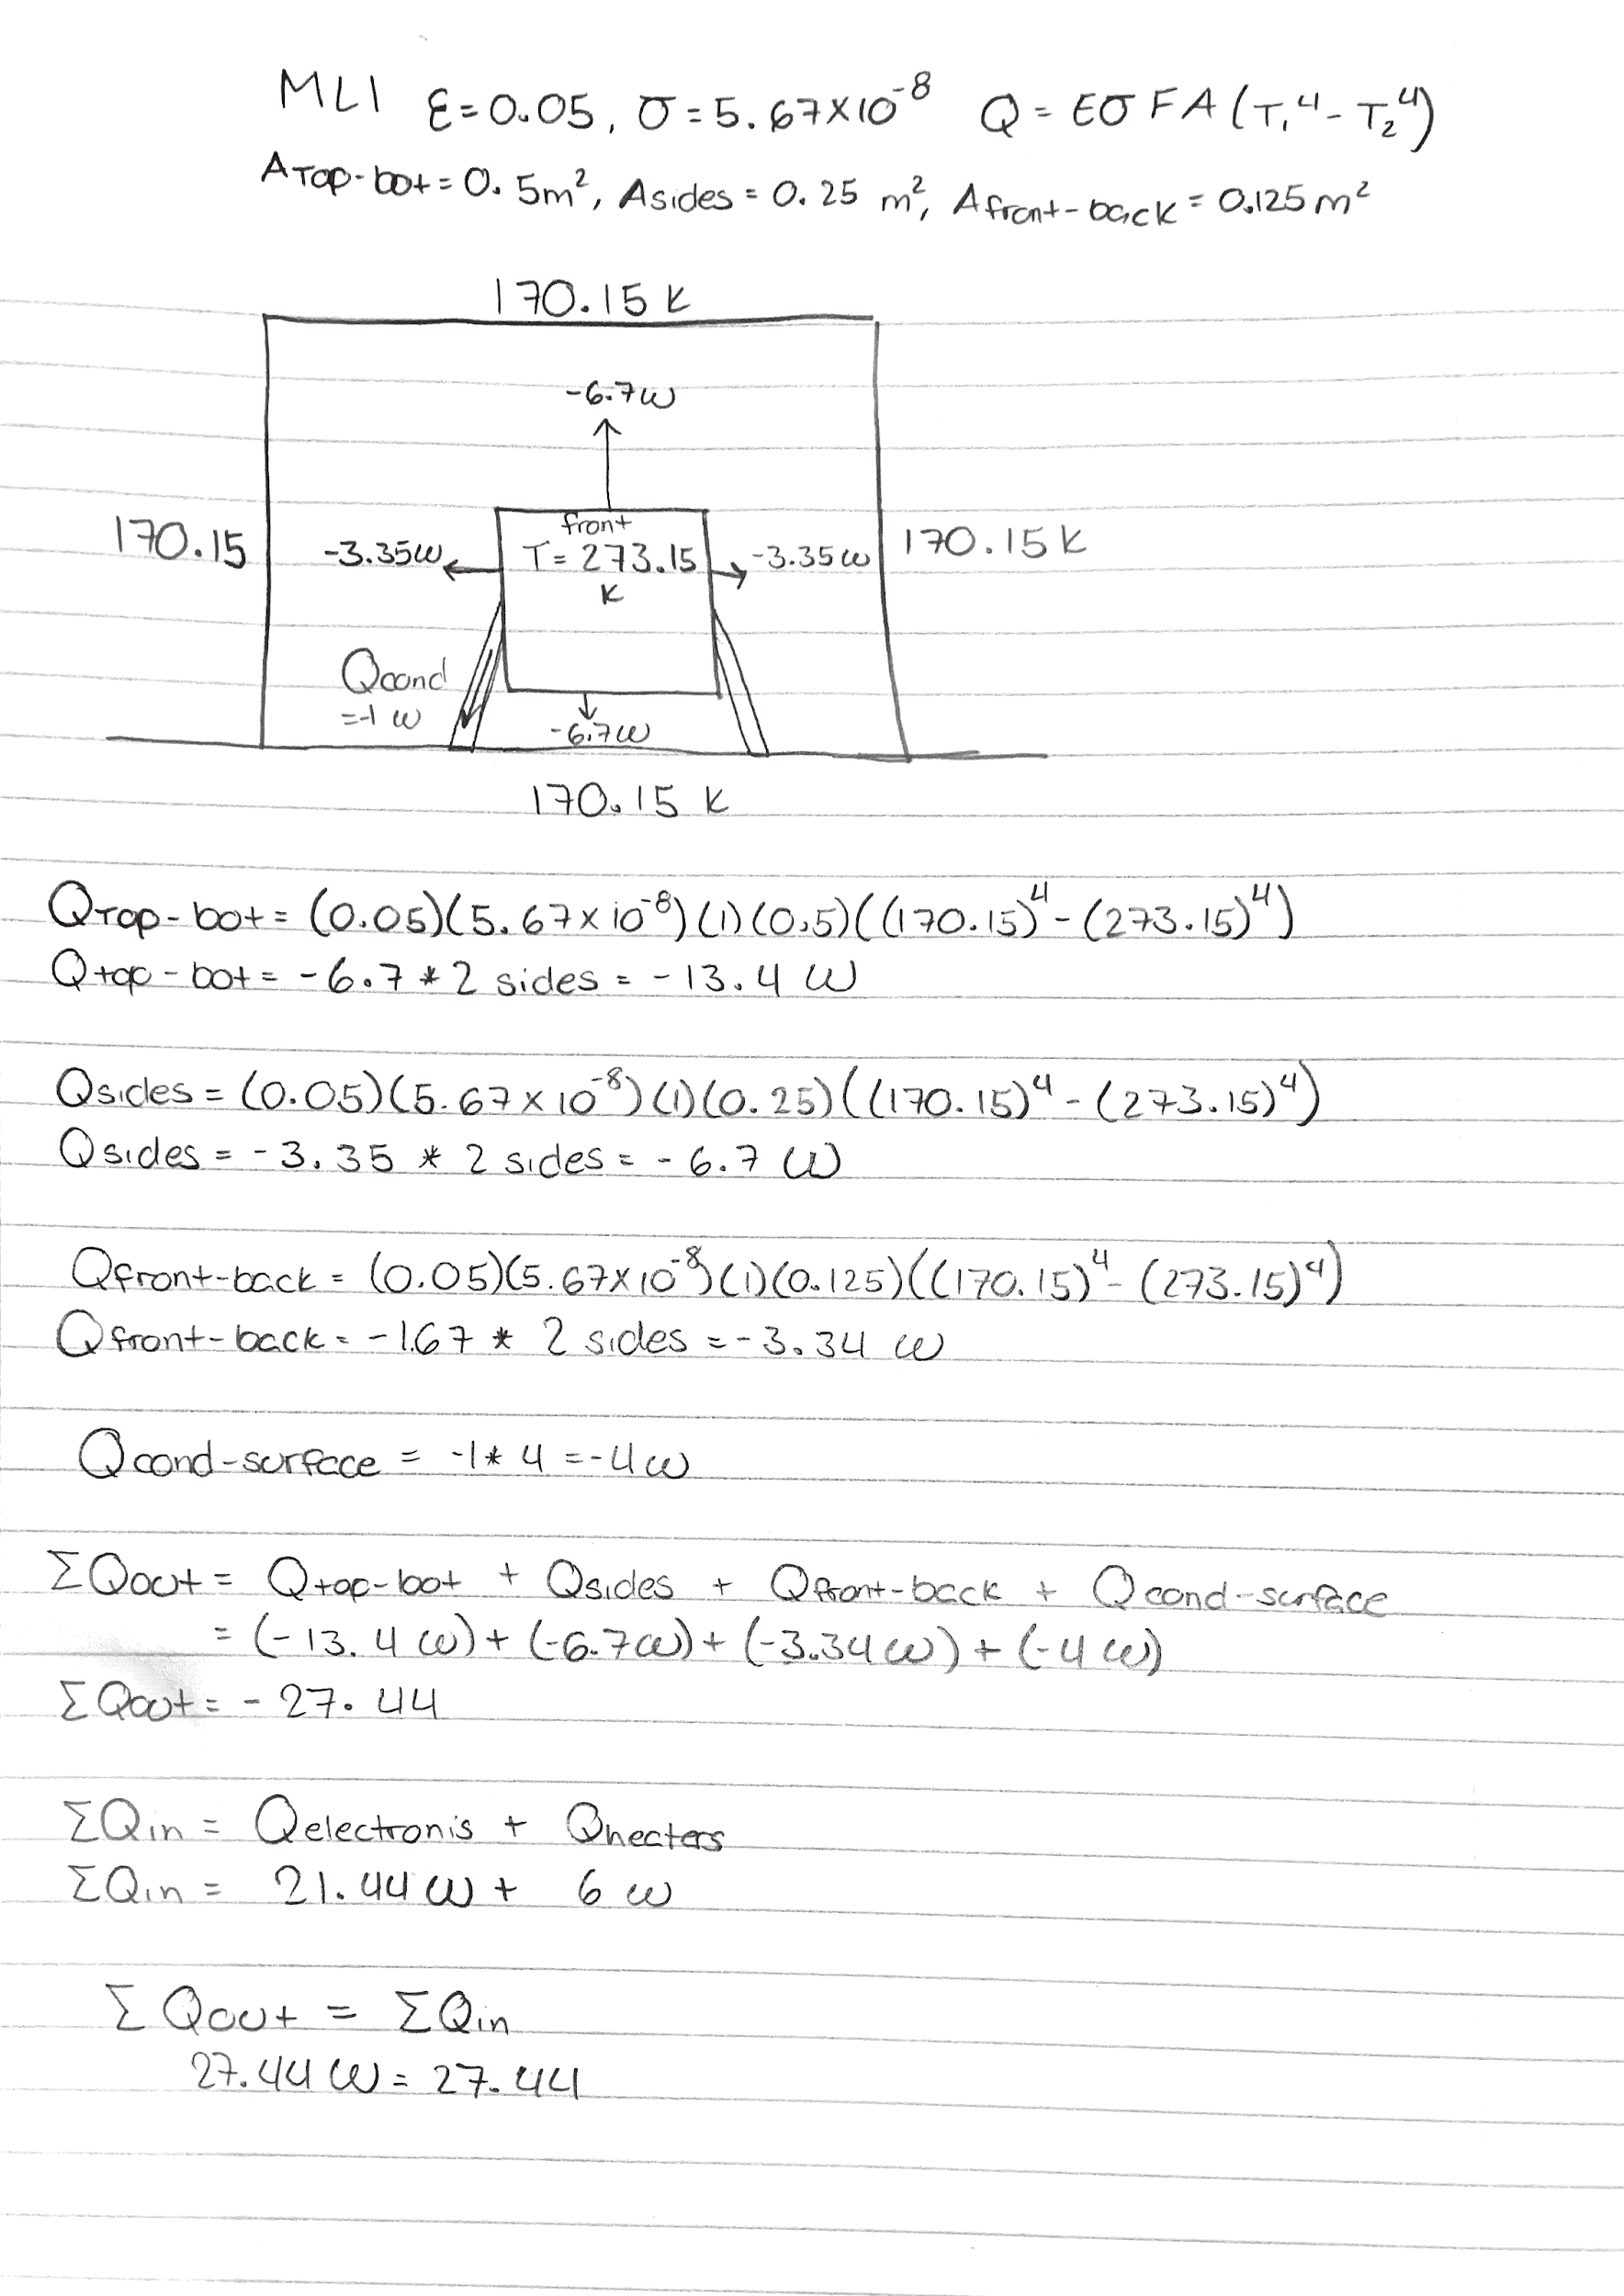 MLI ε=0.05, σ=5.67x10⁻⁸ Q = EσFA(T₁⁴-T₂⁴)
ATop-bot=0.5m², Asides=0.25 m², Afront-back=0.125m²
170.15 K
-6.7W
front
170.15
-3.35W
T=273.15
K
-3.35W
170.15K
Qcond
=-1 W
-6.7W
170.15 K
QTop-bot = (0.05)(5.67x10⁻⁸)(1)(0.5)((170.15)⁴-(273.15)⁴)
Qtop-bot = -6.7 * 2 sides = -13.4 W
Qsides = (0.05)(5.67x10⁻⁸)(1)(0.25)((170.15)⁴-(273.15)⁴)
Qsides = -3.35 * 2 sides = -6.7 W
Qfront-back = (0.05)(5.67x10⁻⁸)(1)(0.125)((170.15)⁴-(273.15)⁴)
Qfront-back = -1.67 * 2 sides = -3.34 W
Qcond-surface = -1*4 =-4W
ΣQout = Qtop-bot + Qsides + Qfront-back + Qcond-surface
= (-13.4W)+(-6.7W)+(-3.34W)+(-4W)
ΣQout = -27.44
ΣQin = Qelectronis + Qheaters
ΣQin = 21.44W + 6W
ΣQout = ΣQin
27.44W = 27.44